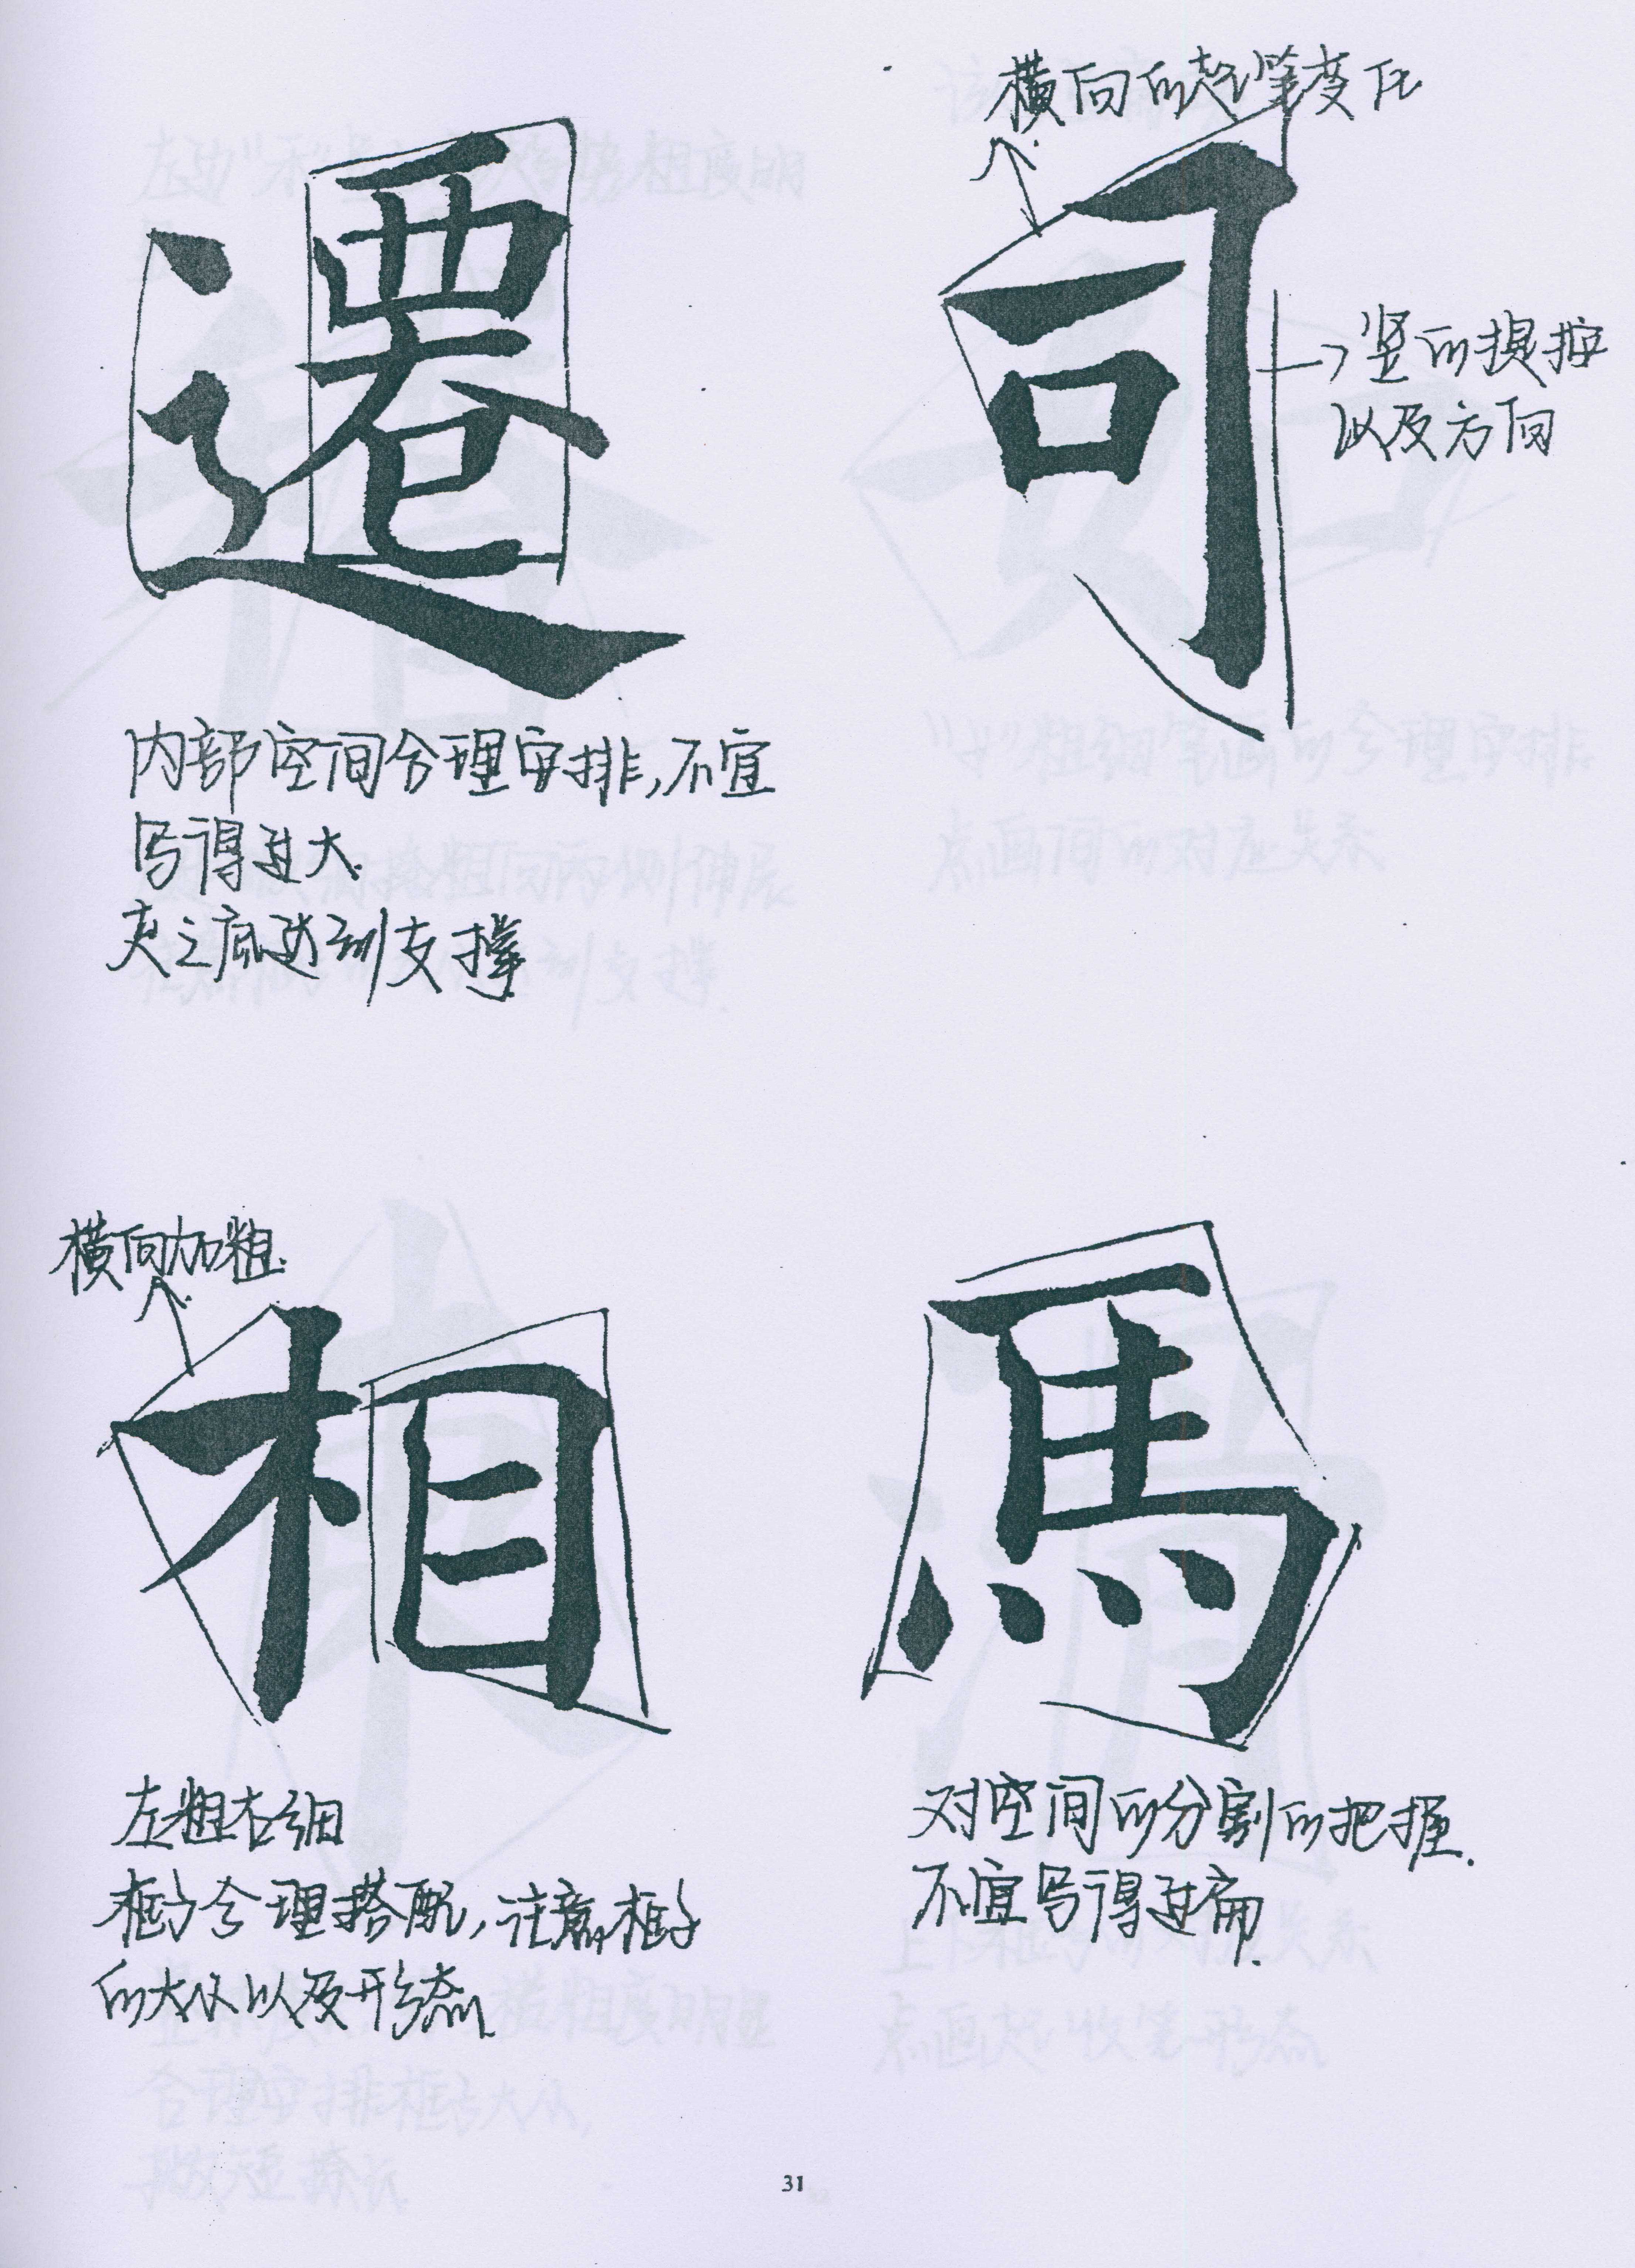 遷
内部空间合理安排,不宜
写得过大.
夹之底达到支撑
横向的起笔变化
司
竖的提按
以及方向
横向加粗.
相
左粗右细
框子合理搭配,注意框子
的大小以及形态
馬
对空间的分割的把握.
不宜写得过扁.
31